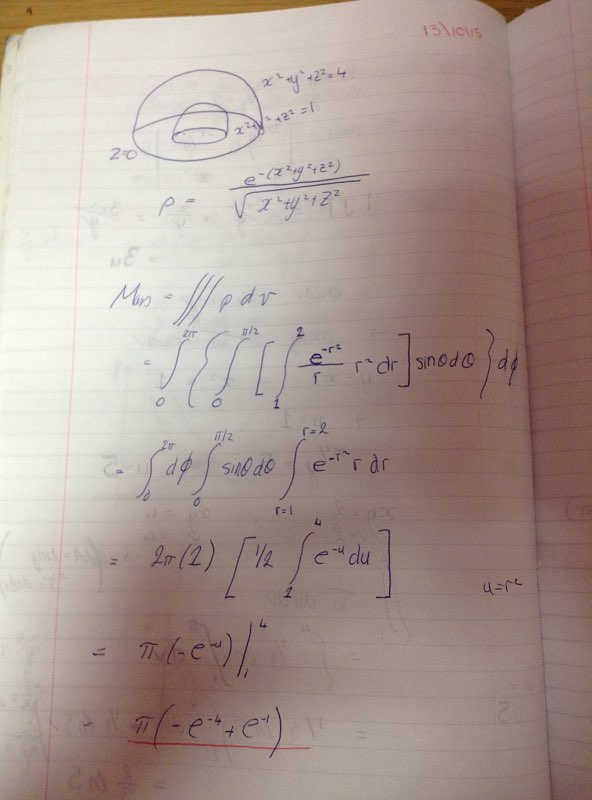 13/10/15
x²+y²+z²=4
x²+y²+z²=1
z=0
ρ = e^-(x²+y²+z²) / √(x²+y²+z²)
Mass = ∭ ρ dv
= ∫₀^2π { ∫₀^π/2 [ ∫₁^2 e^-r² / r r² dr ] sinθdθ } dϕ
= ∫₀^2π dϕ ∫₀^π/2 sinθdθ ∫_r=1^r=2 e^-r² r dr
= 2π(1) [ 1/2 ∫₁^4 e^-u du ]
u=r²
= π(-e^-u)|₁^4
= π(-e^-4 + e^-1)